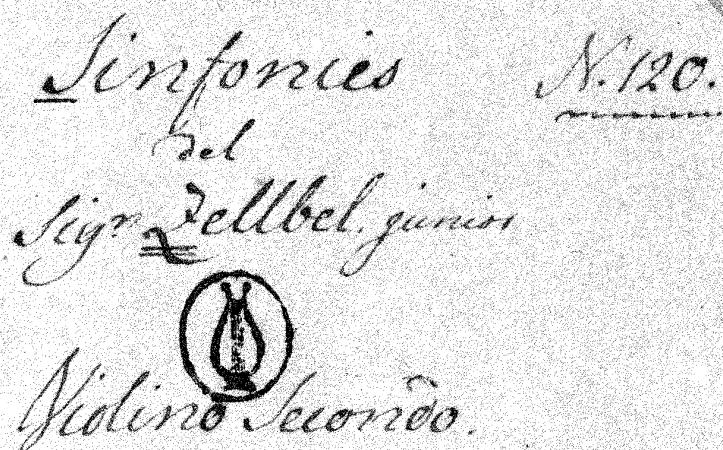 Sinfonies N. 120.
del
Sigr. Zellbel. junior
Violino Secondo.